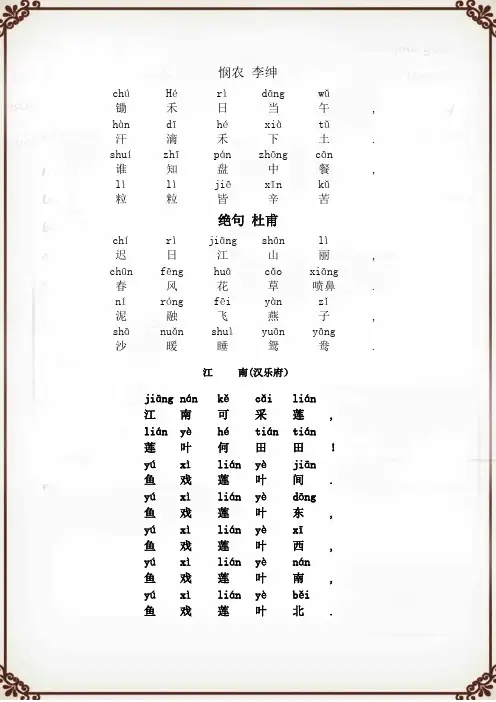 悯农 李绅
chú Hé rì dāng wǔ
锄 禾 日 当 午 ,
hàn dī hé xià tǔ
汗 滴 禾 下 土 .
shuí zhī pán zhōng cān
谁 知 盘 中 餐 ,
lì lì jiē xīn kǔ
粒 粒 皆 辛 苦
绝句 杜甫
chí rì jiāng shān lì
迟 日 江 山 丽 ,
chūn fēng huā cǎo xiāng
春 风 花 草 喷鼻 .
ní róng fēi yàn zǐ
泥 融 飞 燕 子 ,
shā nuǎn shuì yuān yāng
沙 暖 睡 鸳 鸯 .
江 南(汉乐府)
jiàng nán kě cǎi lián
江 南 可 采 莲 ,
lián yè hé tián tián
莲 叶 何 田 田 !
yú xì lián yè jiān
鱼 戏 莲 叶 间 .
yú xì lián yè dōng
鱼 戏 莲 叶 东 ,
yú xì lián yè xī
鱼 戏 莲 叶 西 ,
yú xì lián yè nán
鱼 戏 莲 叶 南 ,
yú xì lián yè běi
鱼 戏 莲 叶 北 .